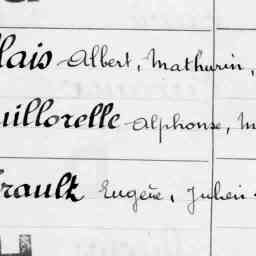 llais Albert, Mathurin,
uillorelle Alphonse, M
rault Eugène, Julien